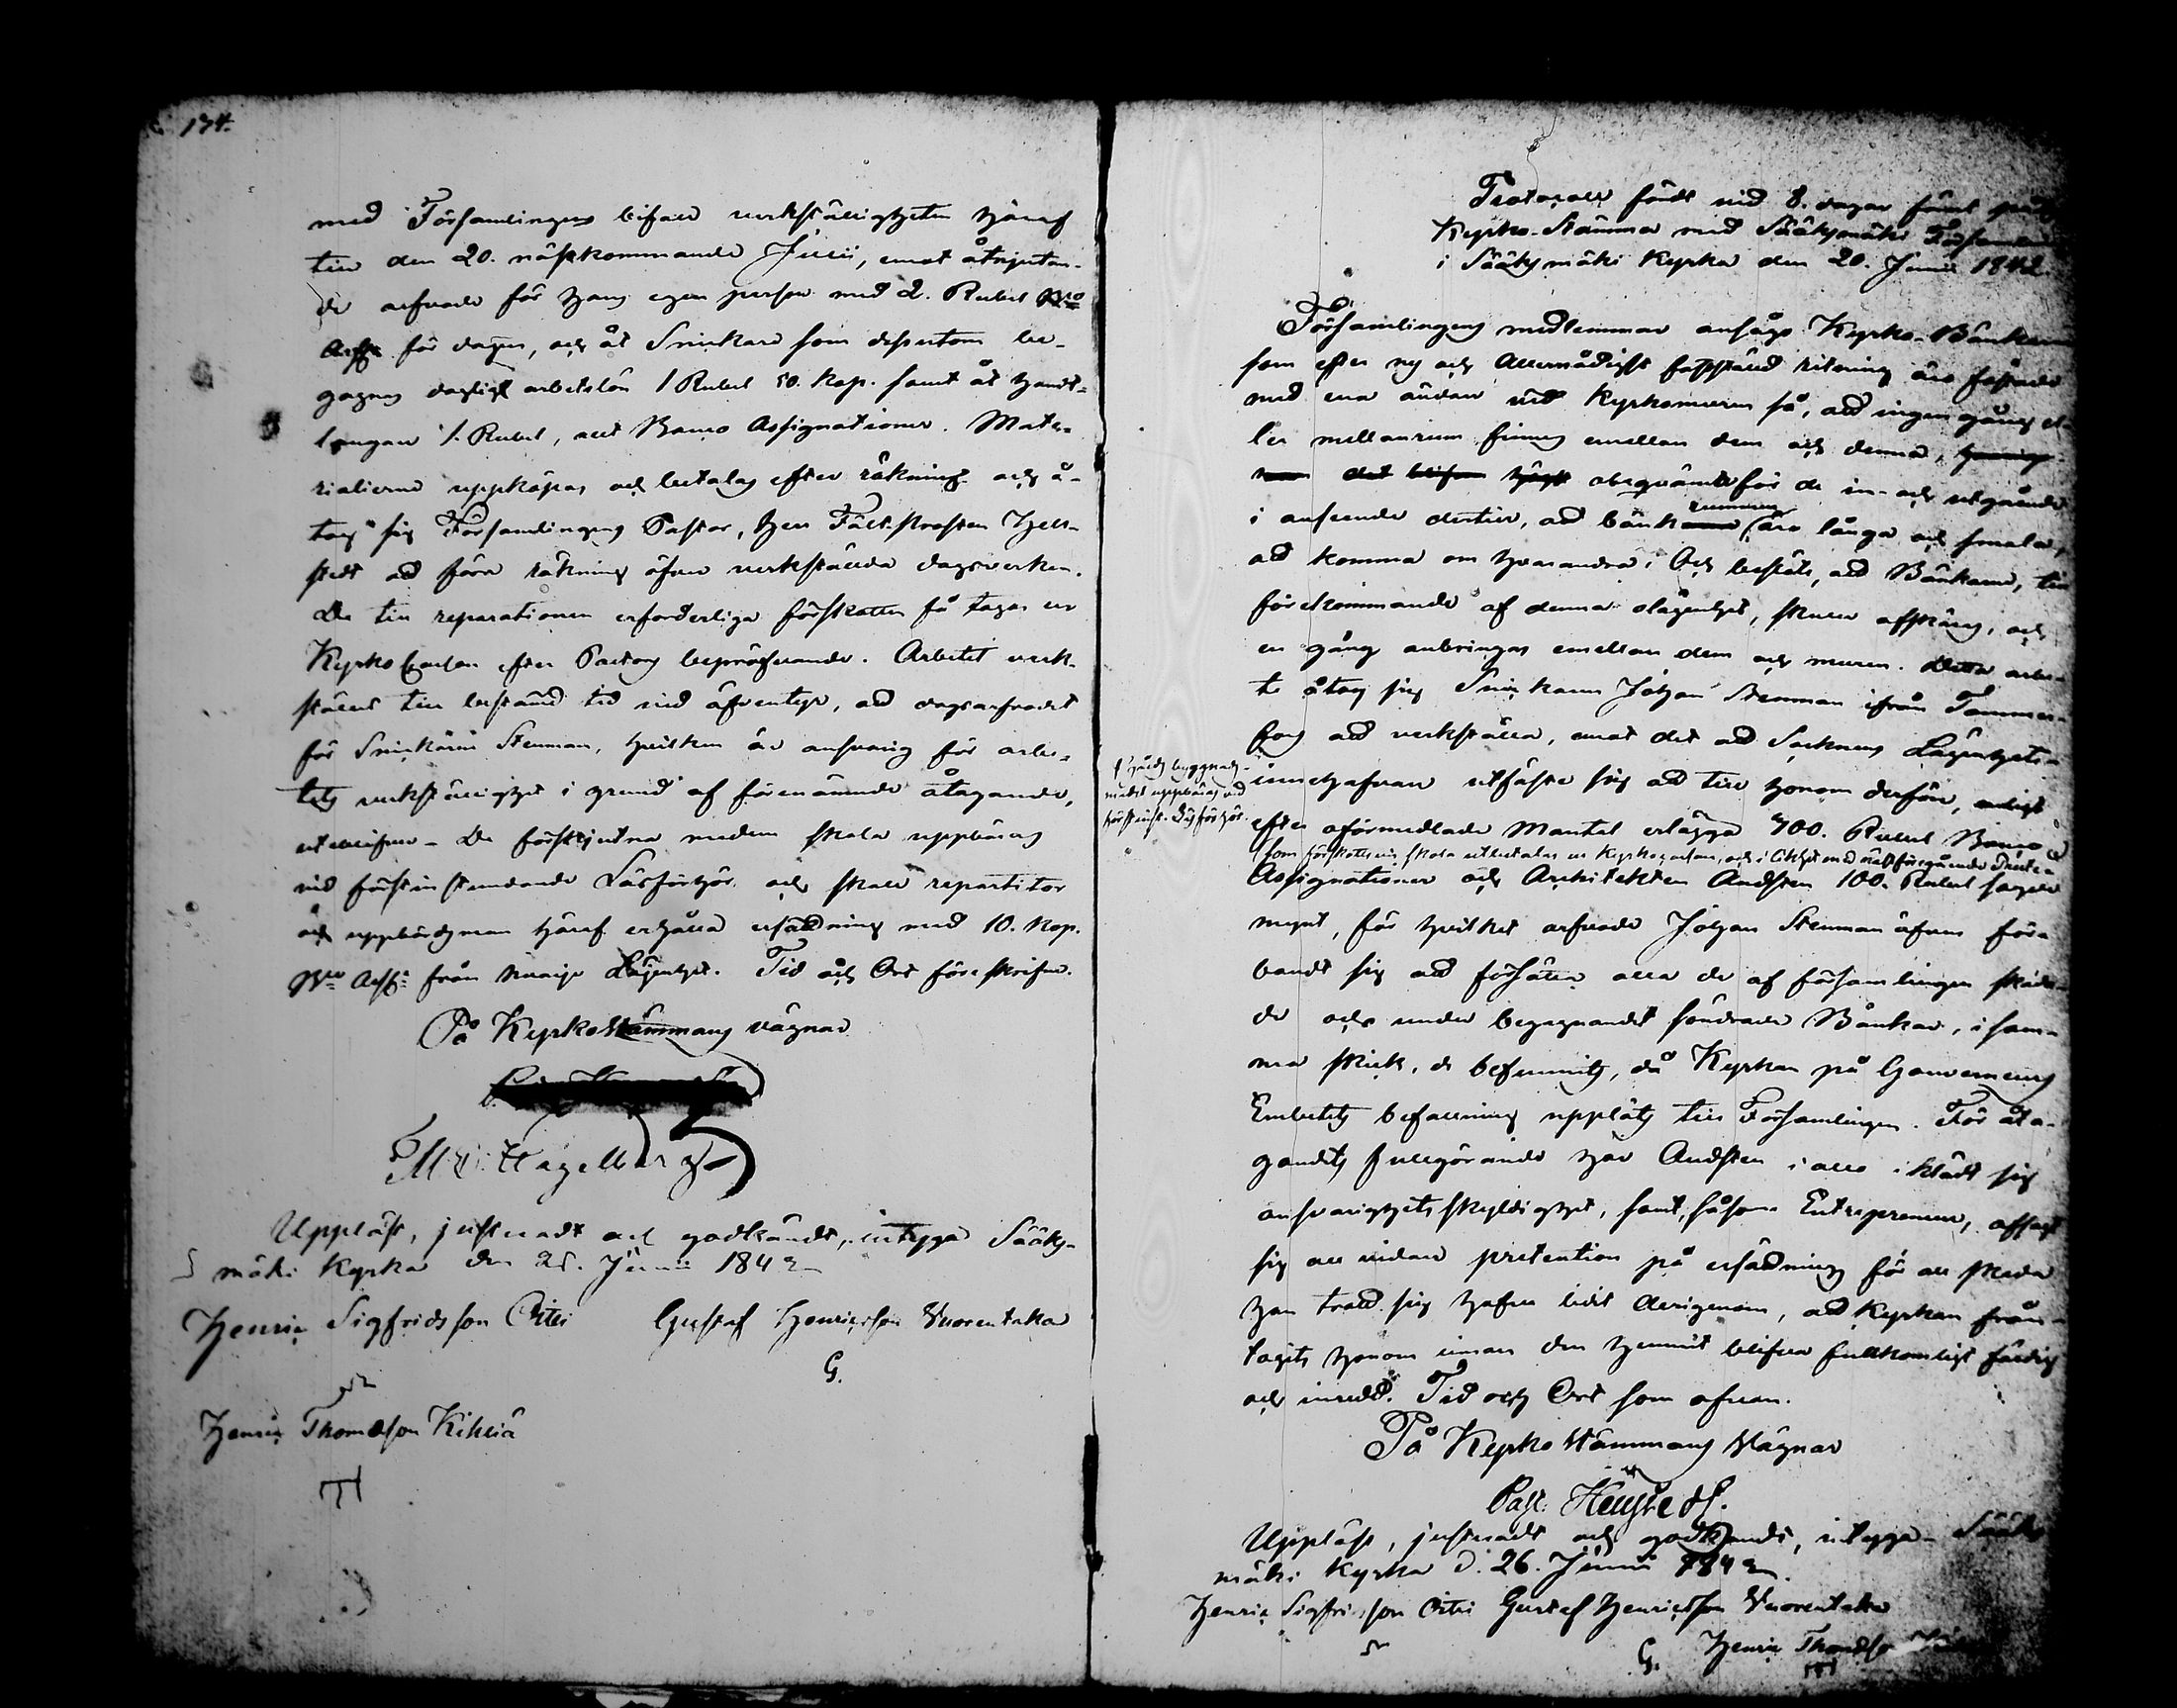 174.
med Församlingens bifall verkställigheten häraf
till den 20. nästkommande Junii, emot åtnjutan-
de arfvode för hans egen person med 2. Rubel Bco
Assg för dagen, och åt Snickare som dessutom be-
gagnas dagligt arbetslön 1 Rubel 50. Kop. samt åt handt-
langare 1. Rubel, allt Banco Assignationer. Mate-
rialierne uppköpas och betalas efter räkning och å-
tog sig Församlingens Pastor, Herr Fält-Prosten Hell-
stedt att föra räkning öfver verkställda dagsverken.
De till reparationen erforderliga förskotten få tagas ur
Kyrko Cassan efter Pastors bepröfvande. Arbetet verk-
ställes till bestämd tid vid äfventyr, att dagsarfvodet
för Snickarn Stenman, hvilken är ansvarig för arbe-
tets verkställighet i grund af förenämnde åtagande,
uteblifver. De förskjutna medlen skola uppbäras
vid förstinstundande Läsförhör och skall repartitor
och uppbördsman häraf erhålla ersättning med 10. Kop.
Bco Assg: från hvarje Lägenhet. Tid och Ort föreskrifne.
På Kyrkostämmans vägnar
Hagelberg
Uppläst, justeradt och godkändt, intyga Sääks-
mäki Kyrka den 26. Junii 1842
Henric Sigfridsson Osti Gustaf Henricsson Vuorentaka
G.
Henric Thomasson Kihliä
Protocoll fördt vid 8. dagar förut
Kyrko-Stämma med Sääksmäki
i Sääksmäki Kyrka den 20. Junii 1842.
Församlingens medlemmar ansågo Kyrko-Bänkarne
som efter ny och Allernådigst fastställd ritning äro fästade
med ena ändan vid Kyrkomuren så, att ingen gång el-
ler mellanrum finnes emellan dem och denna,
det blifva högst obeqvämt för de in- och utgående
rummen
i anseende dertill, att bänk äro långa och smala,
att komma om hvarandra; Och beslöts, att Bänkarne, till
förekommande af denna olägenhet, skulle afskäras, och
en gång anbringas emellan dem och muren. Detta arbe-
te åtog sig Snickaren Johan Stenman ifrån Tammer-
fors att verkställa, emot det att Socknens Lägenhets-
innehafvare utfäste sig att till honom derföre,
efter oförmedlade Mantal erlägga 700. Rubel Banco
som förskottsvis skola utbetalas ur Kyrkocassan, och i likhet med nästföregående
Assignationer och Architekten Andsten 100. Rubel
mynt, för hvilket arfvode Johan Stenman äfven för-
band sig att försätta alla de af församlingen
de och under begagnandet söndrade Bänkar, i sam-
ma skick, de befunnits, då Kyrkan på Gouvernements
Embetets befallning uppläts till Församlingen. För åta-
gandets fullgörande har Andsten i allo iklädt sig
ansvarighets skyldighet, samt, såsom Entrepreneur, afsagt
sig all vidare pretention på ersättning för all skada
han trott sig hafva lidit derigenom, att Kyrkan från-
tagits honom innan den hunnit blifva fullkomligt färdig
och inredd. Tid och Ort som ofvan.
På Kyrko Stämmans Vägnar
Hellstedt.
Uppläst, justeradt och godkändt, intyga Sääks
mäki Kyrka d. 26. Junii 1842.
Henric Sigfridsson Osti Gustaf Henricsson Vuorentaka
G. Henric Thomasson